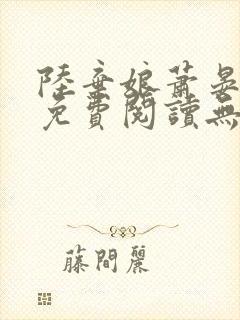 陸棄娘蕭晏
免費閱讀無
藤間麗